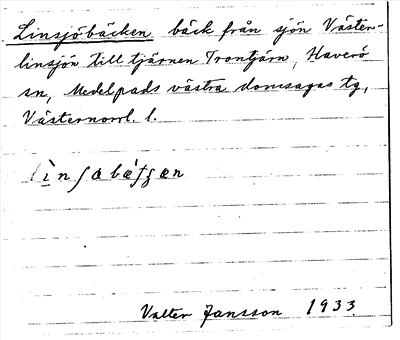 Linsjöbäcken, bäck från sjön Väster-
linsjön till tjärnen Trontjärn, Haverö
sn, Medelpads västra domsagas tg,
Västernorrl. l.
Valter Jansson 1933